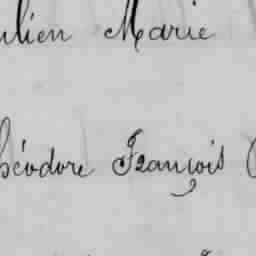 ulien Marie
héodore François